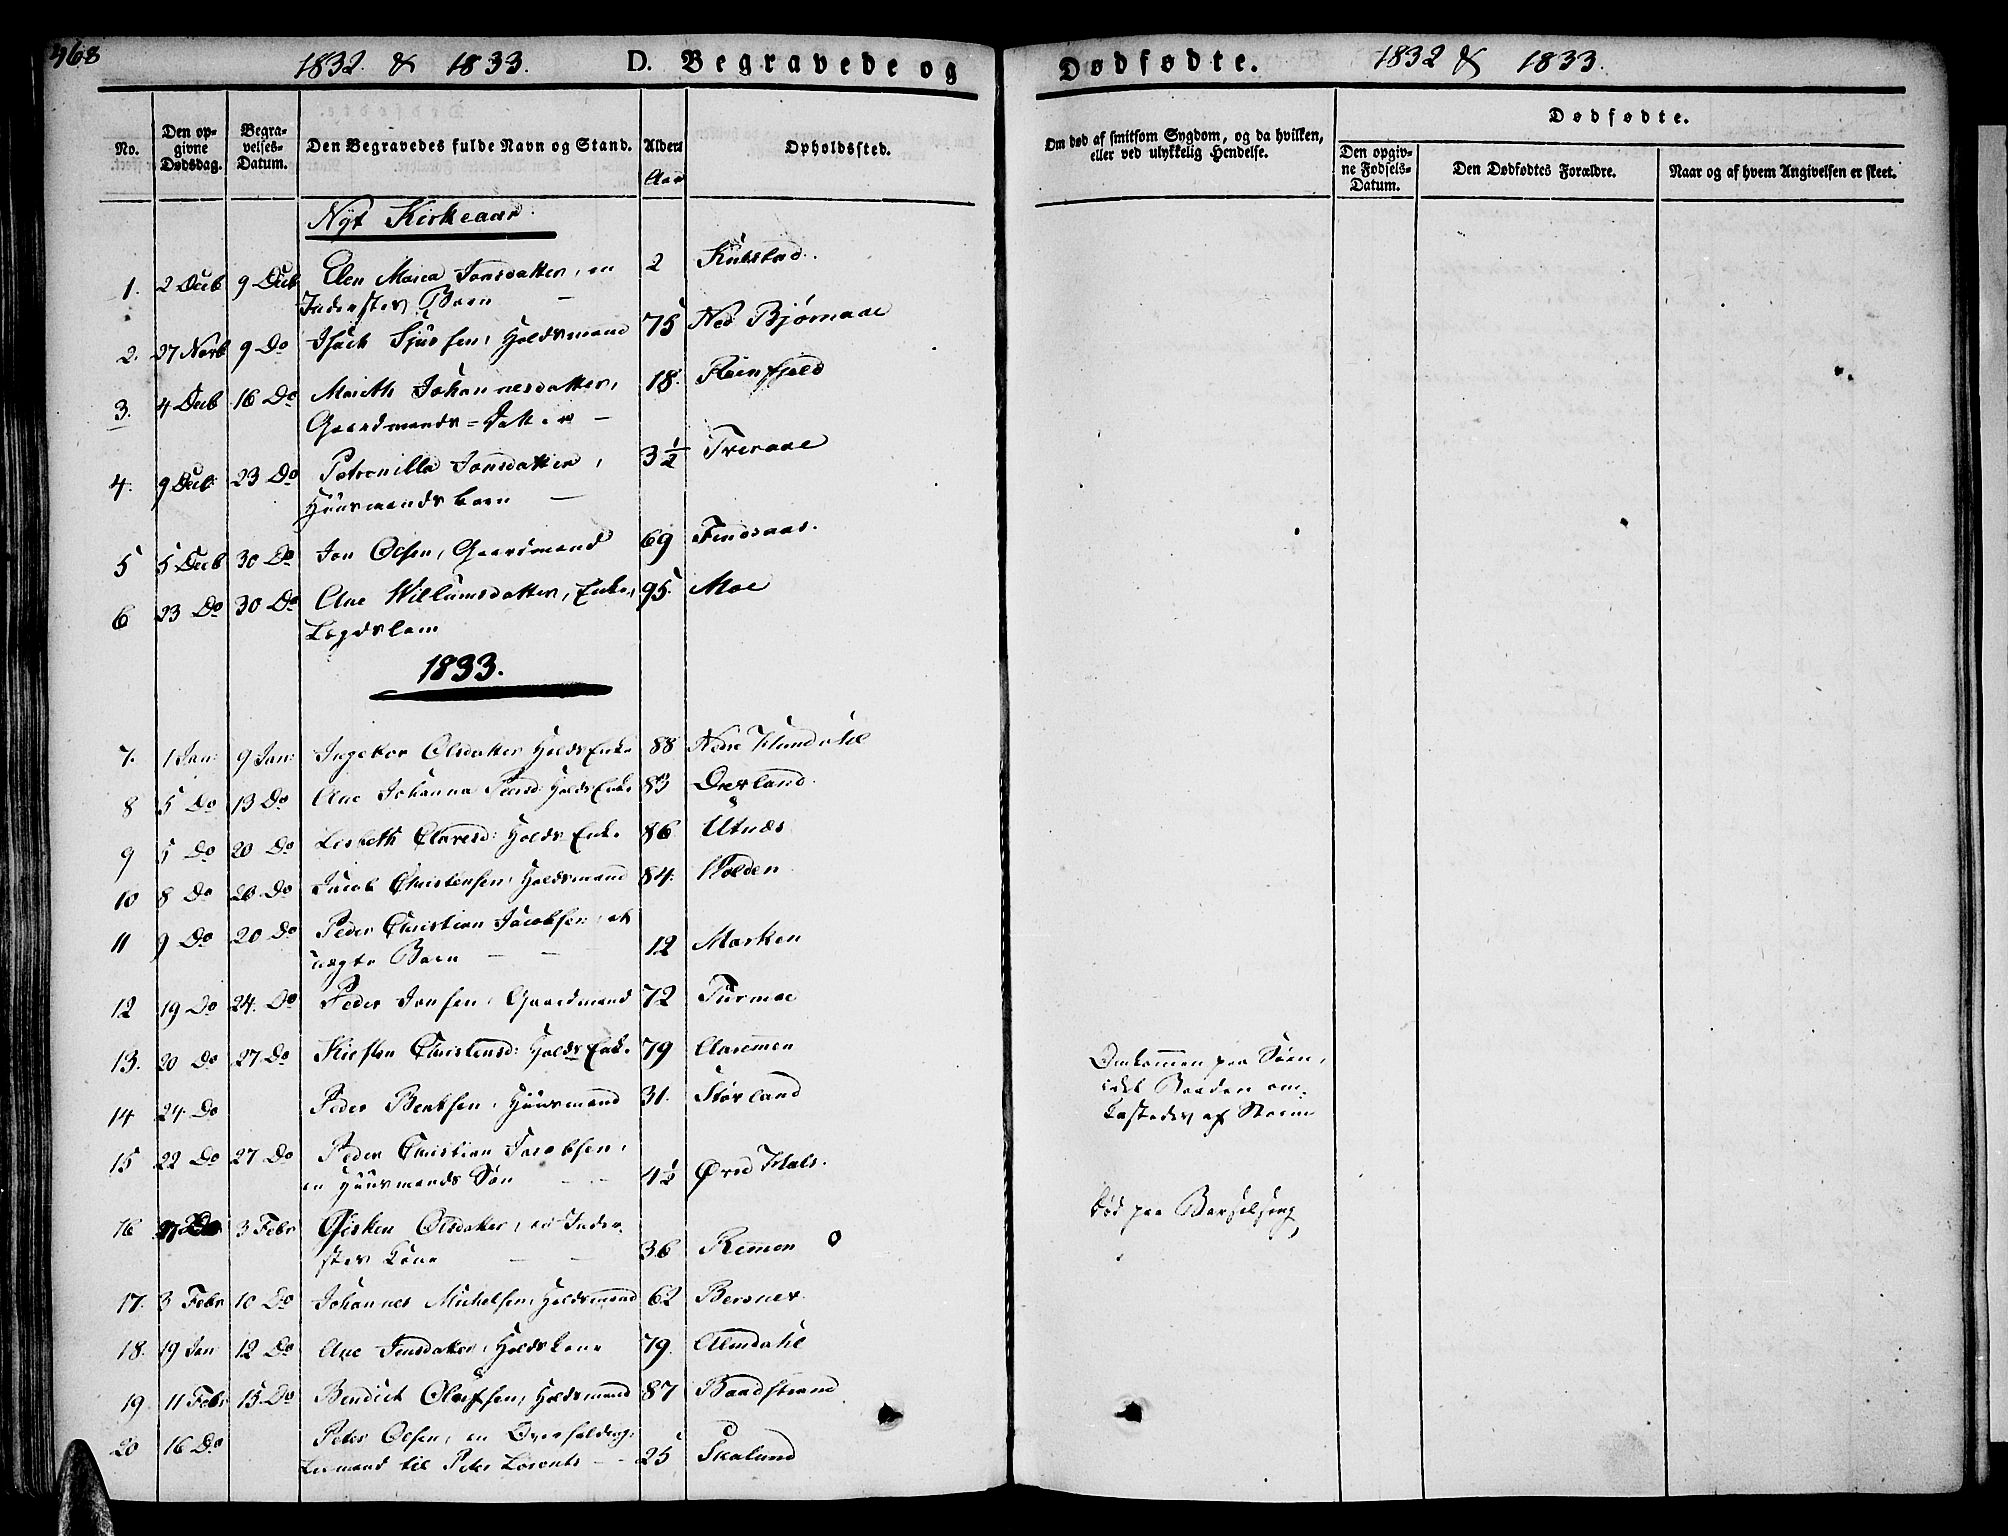 468
1832. & 1833. D. Begravede og
No. Den opgivne Dødsdag. Begravelses-Datum. Den Begravedes fulde Navn og Stand. Alders Aar Opholdssted.
Nyt Kirkeaar.
1. 2 Decb 9 Decb Elen Maria Jonsdatter, en 2
Inderstes Barn —
2. 27 Novb 9 Do Isach Sjursen, Holdsmand 75 Ned Bjørnaae
3. 4 Decb 16 Do Mareth Johannesdatter, 18. Reinfjeld
Gaardmands-Datter —
4. 9 Decb 23 Do Petronilla Jonsdatter, 3½ Treraae
Huusmands barn —
5 5 Decb 30 Do Jon Olsen, Gaardmand 69 Findsaas.
6 23 Do 30 Do Ane Willumsdatter, Enke, 95. Moe
Legdslem
1833.
7. 1 Jan: 9 Jan: Ingebor Olsdatter Holds Enke 88 Nedre
8 5 Do 13 Do Ane Johanna Holds Enke 83 Drevland.
9 5 Do 20 Do Lisbeth Olavesd: Holds Enke 86 Utnæs
10 8 Do 20 Do Jacob Christensen, Holdsmand 84. Wolden
11 9 Do 20 Do Peder Christian Jacobsen, et
uægte Barn — — 12 Marken
12 19 Do 24. Do Peder Jonsen, Gaardmand 72 Turmoe
13. 20 Do 27 Do Kirsten Christensd: Holds Enke 79
14 24. Do Peder Bentsen, Huusmand 31. Størland
15 22 Do 27 Do Peder Christian Jacobsen,
en Huusmands Søn — — 4½ Øvre Hals.
16 Do 3 Febr Olsdatter, en Inder-
stes Kone — — 36 Remmen
17. 3 Febr 10 Do Johannes Michelsen, Holdsmand 62 Bersnes.
18. 19 Jan 12 Do Ane Jensdatter, Holdskone 79. Almdahl
19. 11 Febr 15. Do Bendict Olufsen, Holdsmand 87 Baadstrand
20 16 Do Peter Olsen, en Overhalding,
Leiemand til Peter Lorents — 25 Skalund
Dødfødte. 1832 & 1833.
Om død af smitsom Sygdom, og da hvilken, eller ved ulykkelig Hendelse.
Dødfødte.
Den opgivne Fødsels-Datum. Den Dødfødtes Forældre. Naar og af hvem Angivelsen er skeet.
Omkommen paa Søen,
idet Baaden om-
kastedes af Storm
Død paa Barselseng